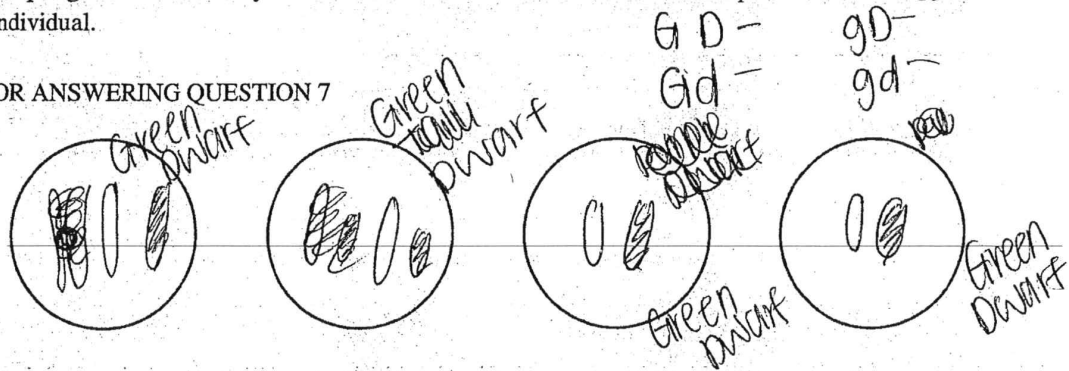 ndividual.
G D -
Gd -
gD-
gd-
OR ANSWERING QUESTION 7
Green
Dwarf
Green
Dwarf
Green
Dwarf
Green
Dwarf